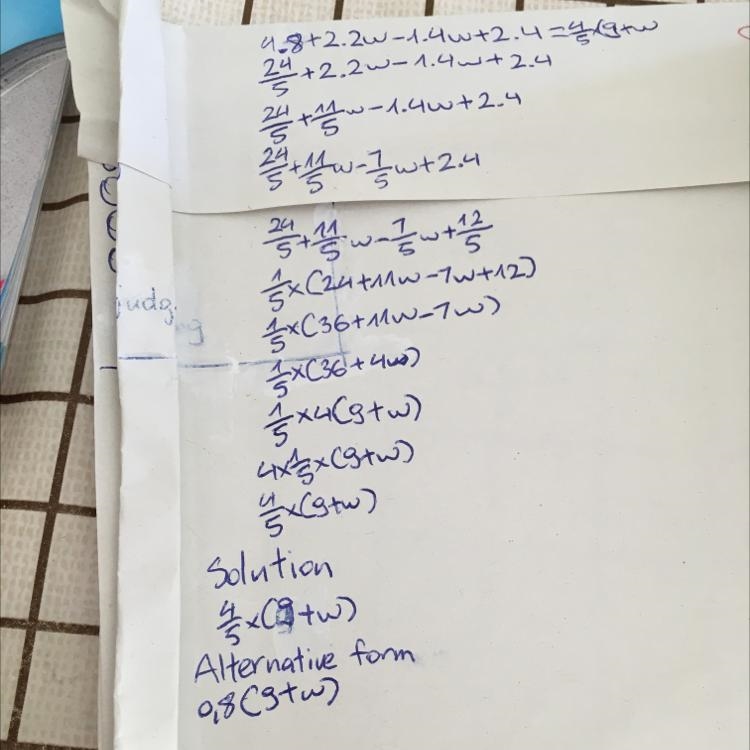 4.8+2.2w-1.4w+2.4=4/5×(9+w
24/5+2.2w-1.4w+2.4
24/5+11/5w-1.4w+2.4
24/5+11/5w-7/5w+2.4
24/5+11/5w-7/5w+12/5
1/5×(24+11w-7w+12)
1/5×(36+11w-7w)
1/5×(36+4w)
1/5×4(9+w)
4×1/5×(9+w)
4/5×(9+w)
Solution
4/5×(9+w)
Alternative form
0,8(9+w)
judg